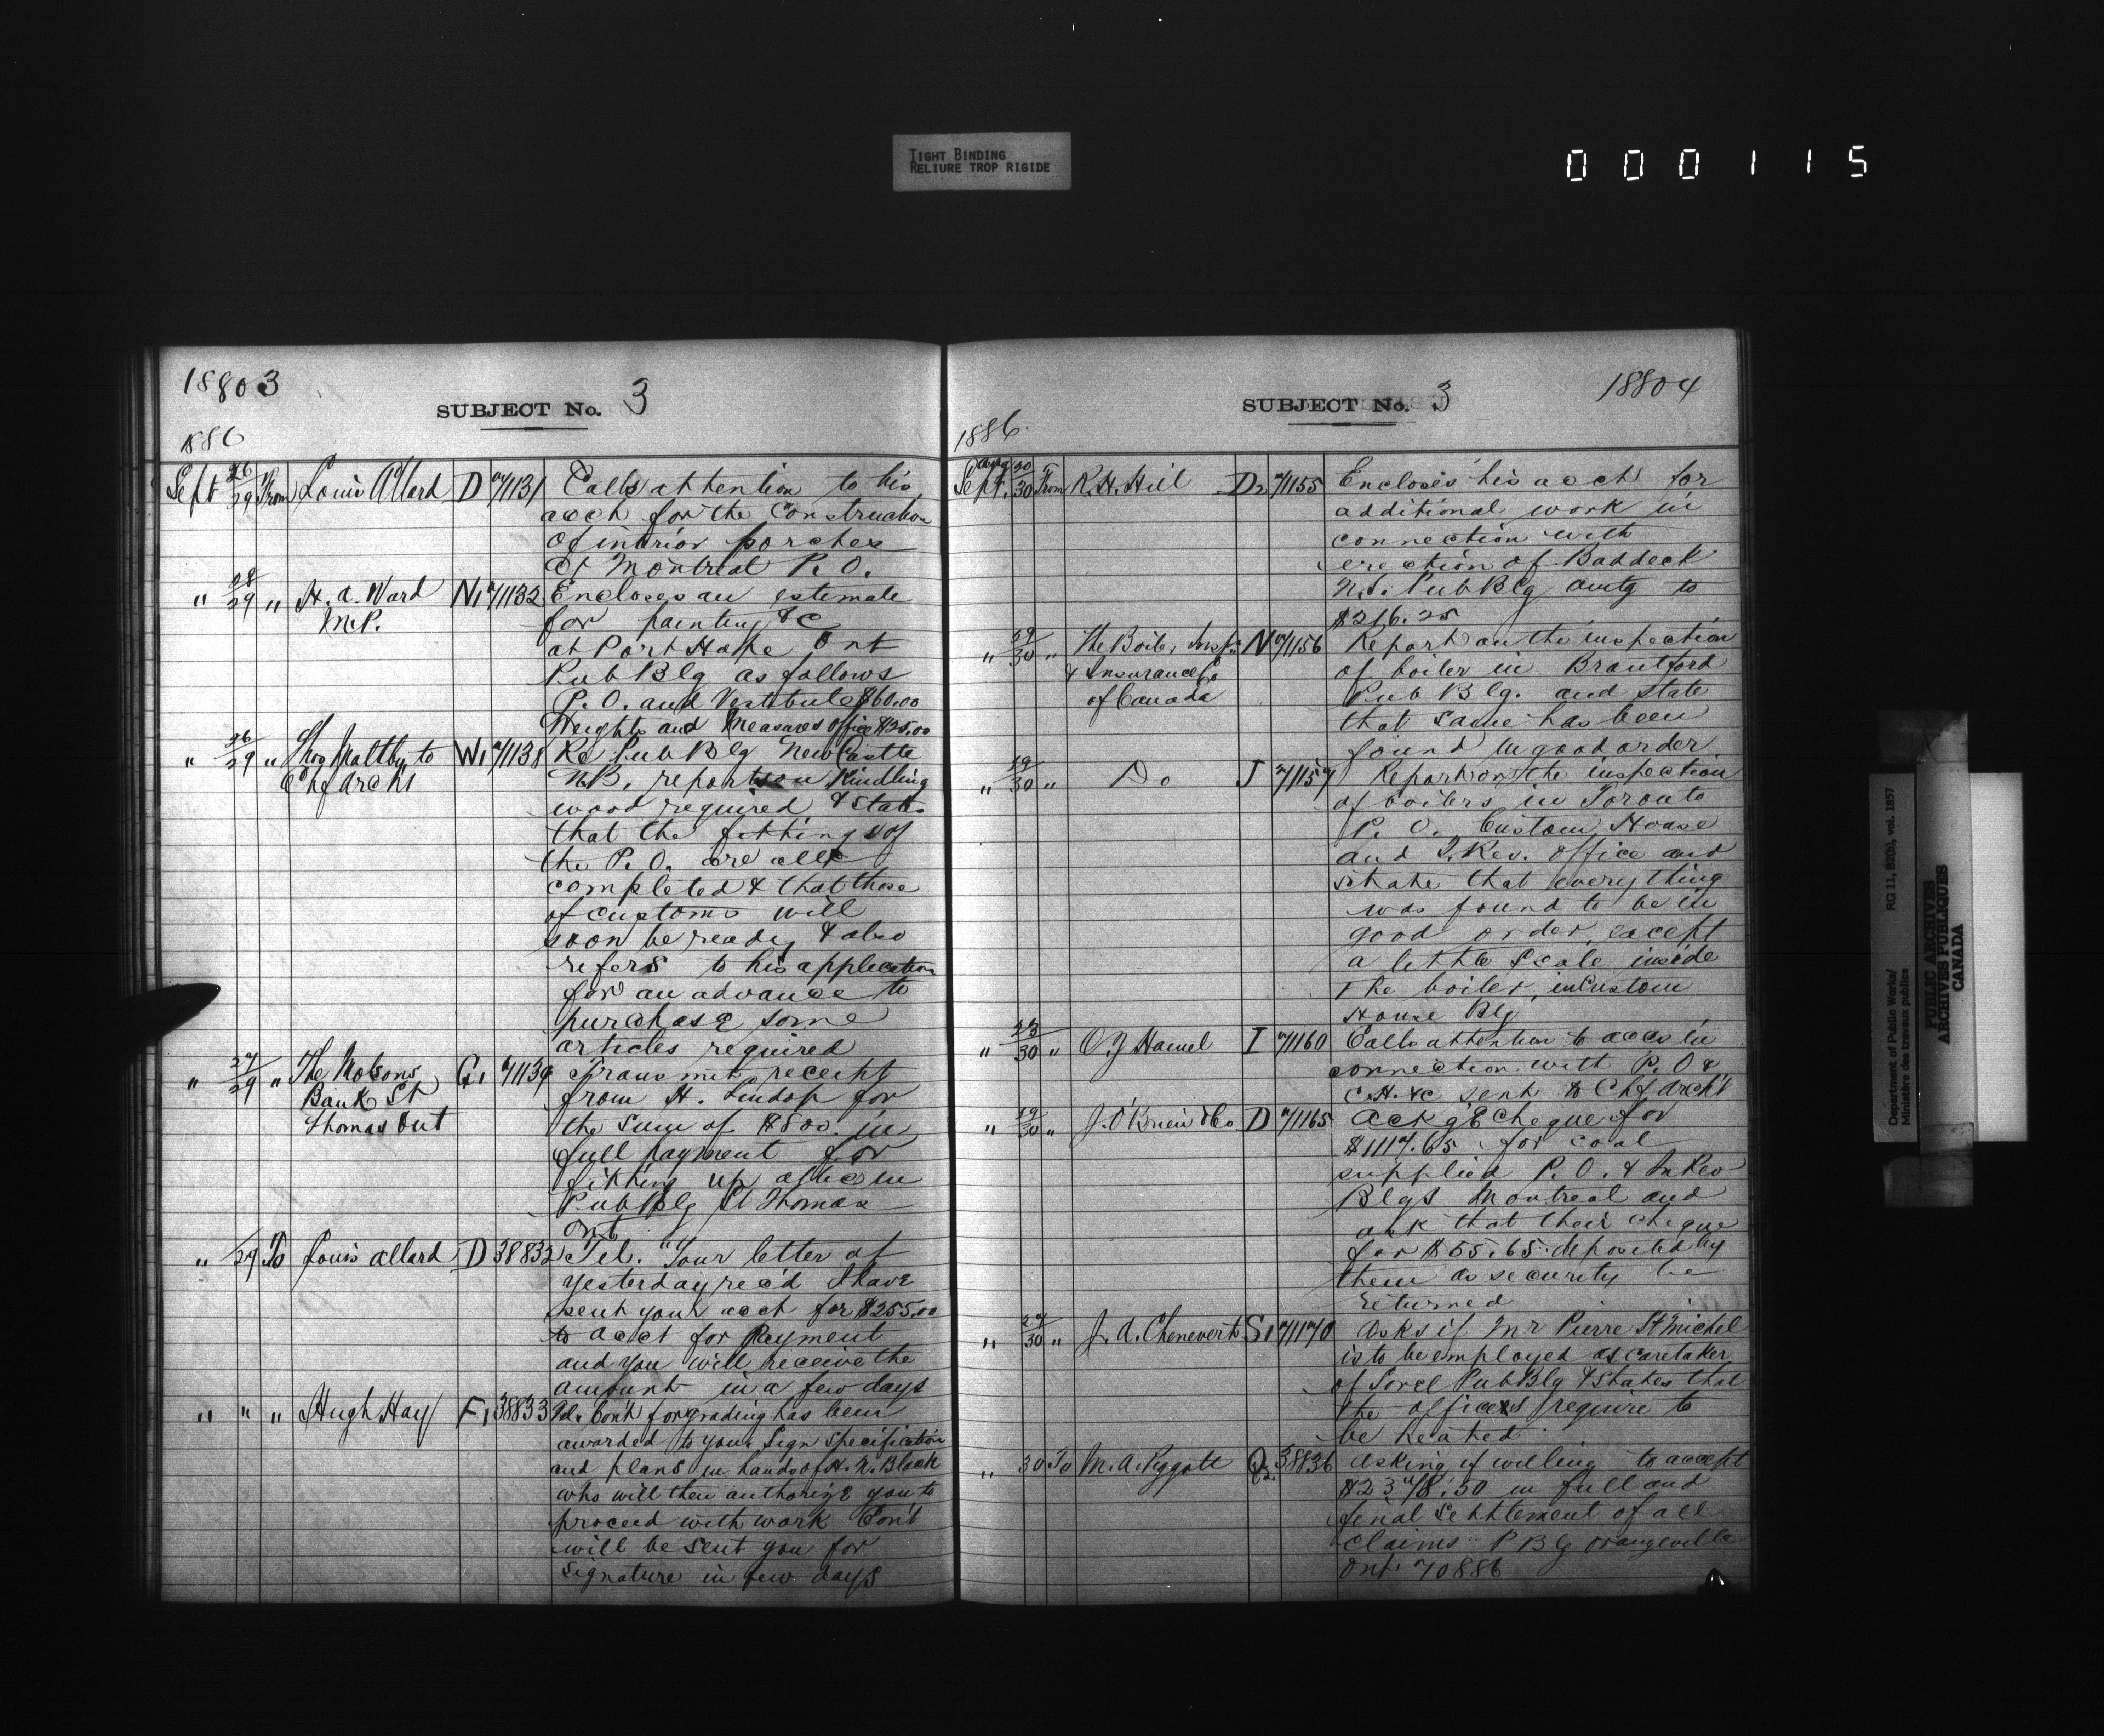 TIGHT BINDING
RELIURE TROP RIGIDE
000115
18803
SUBJECT No. 3
1886
Sept 26/29 From Louis Allard D 71131 Calls attention to his
acct for the Construction
of interior porches
at Montreal P.O.
" 28/29 " H. A. Ward N1 71132 Encloses an estimate
M.P.
for painting &c
at Port Hope Ont
Pub Blg as follows
P.O. and Vestibule $60.00
Weights and Measures Office $35.00
" 26/29 " Thos Maltby to W1 71138 Re Pub Blg New Castle
Chf Archt
N.B. reports on Kindling
wood required & states
that the fittings of
the P.O. are all
completed & that those
of customs will
soon be ready & also
refers to his application
for an advance to
purchase some
articles required
" 27/29 " The Molsons G1 71139 Transmit receipt
Bank St
Thomas Ont
from H. Lindop for
the sum of $800 in
full payment for
fitting up attic in
Pub Blg St Thomas
Ont
" /29 To Louis Allard D 38832 Tel. "Your letter of
yesterday rec'd I have
sent your acct for $255.00
to acct for payment
and you will receive the
amount in a few days
" " " Hugh Hay F1 38833 Tel. Con't for grading has been
awarded to you. Sign specification
and plans in hands of H. N. Black
who will then authorize you to
proceed with work Con't
will be sent you for
signature in few days
18804
SUBJECT No. 3
1886.
Aug
Sept. 20/30 From R.H. Hill D2 71155 Encloses his acct for
additional work in
connection with
erection of Baddeck
N.S. Pub Blg amtg to
$216.25
" 29/30 " The Boiler Insp. N 71156 Report on the inspection
& Insurance Co
of Canada
of boiler in Brantford
Pub Blg. and state
that same has been
found in good order.
" 29/30 " Do J 71157 Report on the inspection
of boilers in Toronto
P.O. Custom House
and I. Rev. office and
state that everything
was found to be in
good order, except
a little scale inside
the boiler, in Custom
House Blg
" 23/30 " O.J Hamel I 71160 Calls attention to accs in
connection with P.O &
C.H. &c sent to Chf Archt
" 29/30 " J. O'Brien & Co D 71165 Ackg'e cheque for
$1117.65 for coal
supplied P.O. & In Rev
Blgs Montreal and
ask that their cheque
for $55.65 deposited by
them as security be
returned
" 27/30 " J. A. Chenevert S1 71170 Asks if Mr Pierre St Michel
is to be employed as caretaker
of Sorel Pub Blg & states that
the offices require to
be heated
" 30 To M. A. Piggott Q2 38836 Asking if willing to accept
$2378.50 in full and
final settlement of all
claims P Blg Orangeville
Ont 70886
Department of Public Works/ RG 11, B2(b), vol. 1857
Ministère des travaux publics
PUBLIC ARCHIVES
ARCHIVES PUBLIQUES
CANADA